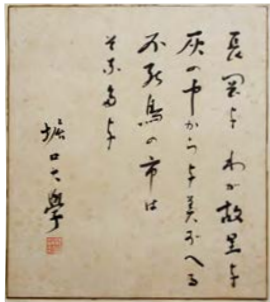 長岡よ わが故里よ
灰の中からよみがへる
不死鳥の市は
そなたよ
堀口大學